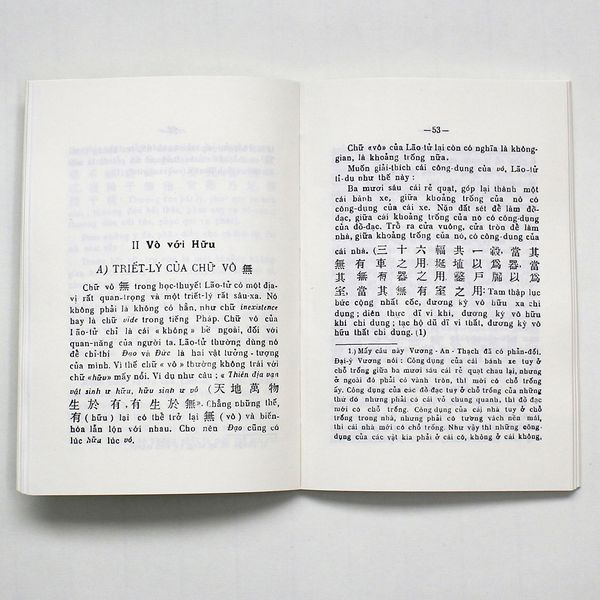 II Vô với Hữu
A) TRIẾT-LÝ CỦA CHỮ VÔ 無
Chữ vô 無 trong học-thuyết Lão-tử có một địa-
vị rất quan-trọng và một triết-lý rất sâu-xa. Nó
không phải là không có hẳn, như chữ inexistence
hay là chữ vide trong tiếng Pháp. Chữ vô của
Lão-tử chỉ là cái «không» bề ngoài, đối với
quan-năng của người ta. Lão-tử thường dùng nó
để chỉ-thị Đạo và Đức là hai vật lưỡng-tượng
của mình. Vì thế chữ «vô» thường không trái với
chữ «hữu» mấy nổi. Ví dụ như câu: «Thiên địa vạn
vật sinh ư hữu, hữu sinh ư vô (天 地 萬 物
生 於 有, 有 生 於 無». Chẳng những thế,
有 (hữu) lại có thể trở lại 無 (vô) và biến-
hóa lẫn lộn với nhau. Cho nên Đạo cũng có
lúc hữu lúc vô.
—53—
Chữ «vô» của Lão-tử lại còn có nghĩa là không-
gian, là khoảng trống nữa.
Muốn giải-thích cái công-dụng của vô, Lão-tử
tỉ-dụ như thế này:
Ba mươi sáu cái rẻ quạt, góp lại thành một
cái bánh xe, giữa khoảng trống của nó có
công-dụng của cái bánh xe. Nặn đất sét để làm đồ-
đạc, giữa cái khoảng trống của nó có công-dụng
của đồ-đạc. Trổ ra cửa vuông, cửa tròn để làm
nhà, giữa khoảng trống của nó, có công-dụng của
cái nhà. (三 十 六 幅 共 一 轂, 當 其
無 有 車 之 用. 埏 埴 以 爲 器, 當
其 無 有 器 之 用. 鑿 戶 牖 以 爲
室, 當 其 無 有 室 之 用: Tam thập lục
bức cộng nhất cốc, đương kỳ vô hữu xa chi
dụng; diên thực dĩ vi khí, đương kỳ vô hữu
khí chi dụng; tạc hộ dũ dĩ vi thất, đương kỳ vô
hữu thất chi dụng. (1)
1.) Mấy câu này Vương-An-Thạch đã có phản-đối.
Đại-ý Vương nói: Công-dụng của cái bánh xe tuy ở
chỗ trống giữa ba mươi sáu cái rẻ quạt chau lại, nhưng
ở ngoài đó phải có vành tròn, thì mới có chỗ trống
ấy. Công-dụng của các đồ-đạc tuy ở chỗ trống của những
thứ đó nhưng phải có cái vỏ chung quanh, thì đồ đạc
mới có chỗ trống. Công dụng của cái nhà tuy ở chỗ
trống trong nhà, nhưng phải có tường vách nền mái,
thì cái nhà mới có chỗ trống. Như vậy thì những công-
dụng của các vật kia phải ở cái có, không ở cái không.